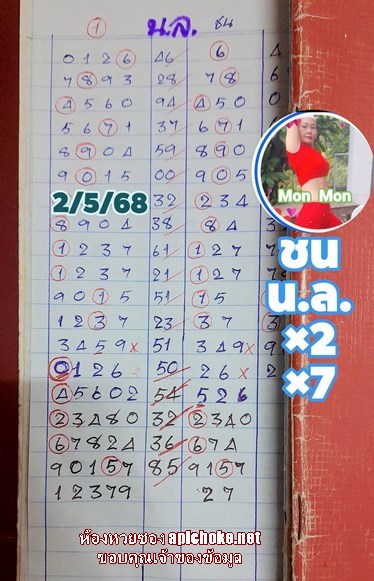 1 น.ล. ชน
0126 46 6 4
7893 28 78 8
4560 94 450 0
5671 37 671
8904 59 890
9015 00 905
2/5/68 32 234
8904 38 84 3
1237 61 127 7
1237 21 127 7
9015 51 15
1237 23 37 3
3459x 51 349x 9
0126 50 26x 2
45602 54 526
23480 32 2340
67824 36 674
90157 85 9157
12379 27
Mon Mon
ชน
น.ล.
×2
×7
ห้องหวยซอง apichoke.net
ขอบคุณเจ้าของข้อมูล